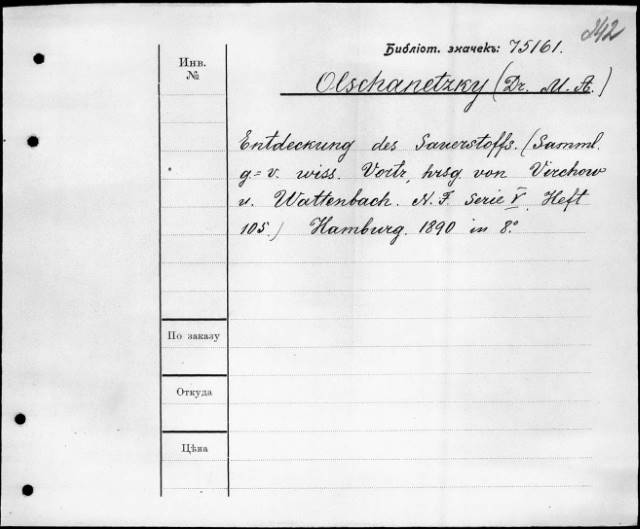 342
Библіот. значекъ: 75161.
Инв.
№
Olschanetzky (Dr. M. A.)
Entdeckung des Sauerstoffs. (Samml.
g=v. wiss. Vortr, hrsg. von Virchow
u. Wattenbach. N. F. Serie V, Heft
105.) Hamburg. 1890 in 8º.
По заказу
Откуда
Цѣна